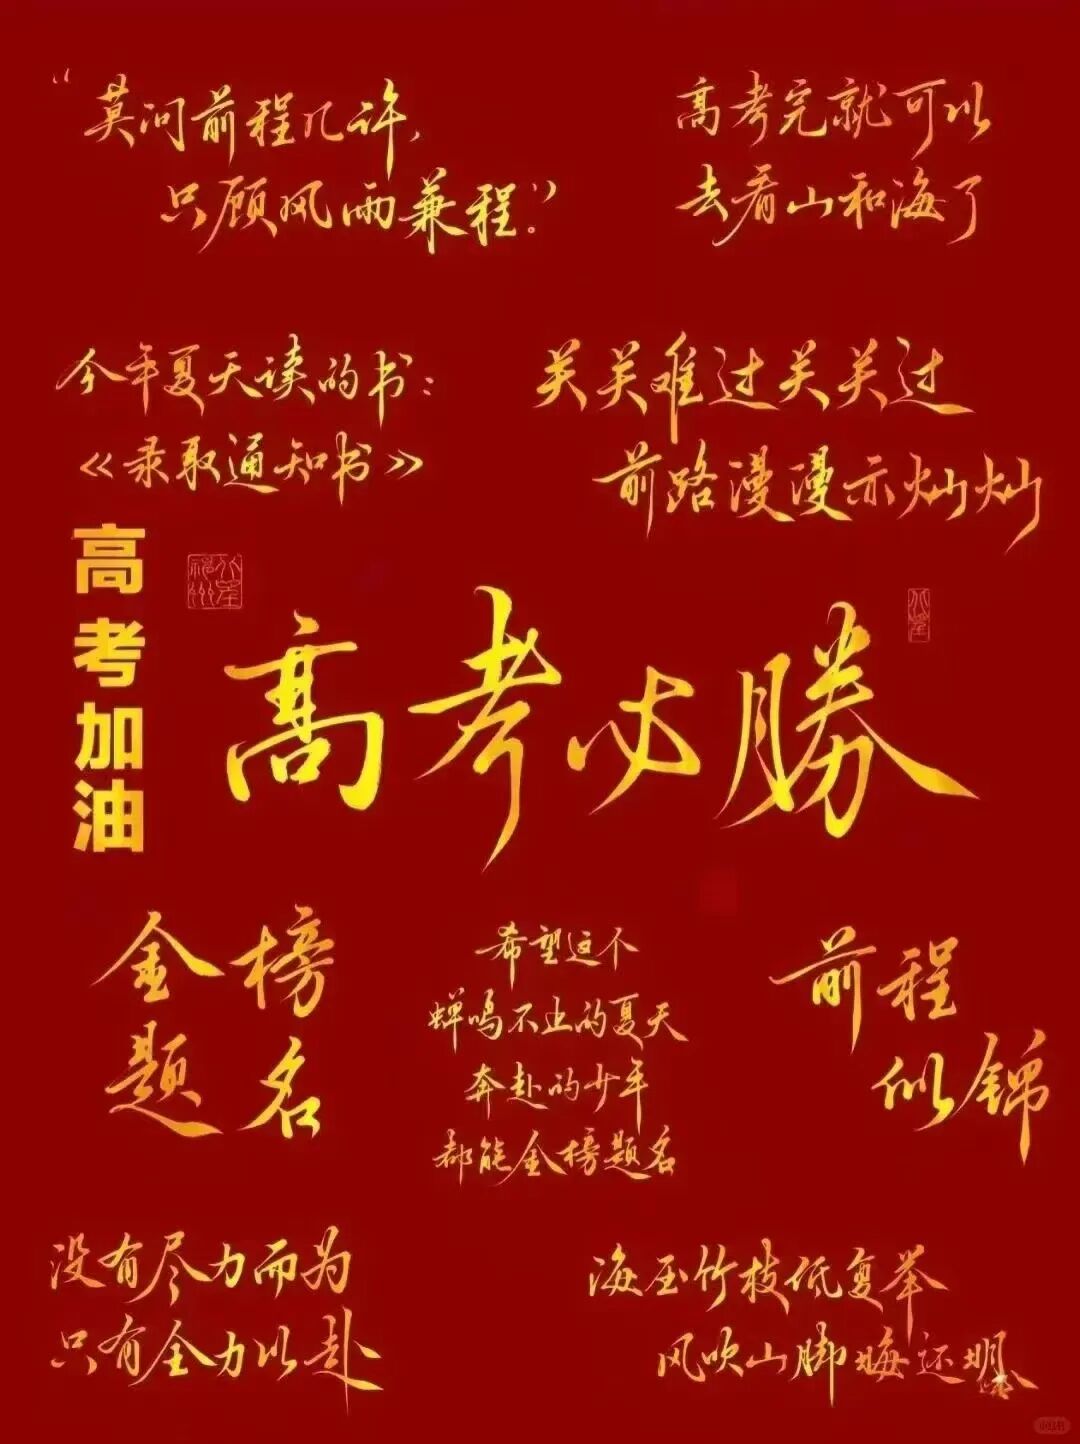 “莫问前程几许,
只顾风雨兼程.”
高考完就可以
去看山和海了
今年夏天读的书:
《录取通知书》
关关难过关关过
前路漫漫亦灿灿
高考加油
高考必勝
金榜
题名
希望这个
蝉鸣不止的夏天
奔赴的少年
都能金榜题名
前程
似锦
没有尽力而为
只有全力以赴
海压竹枝低复举
风吹山脚晦还明
小红书